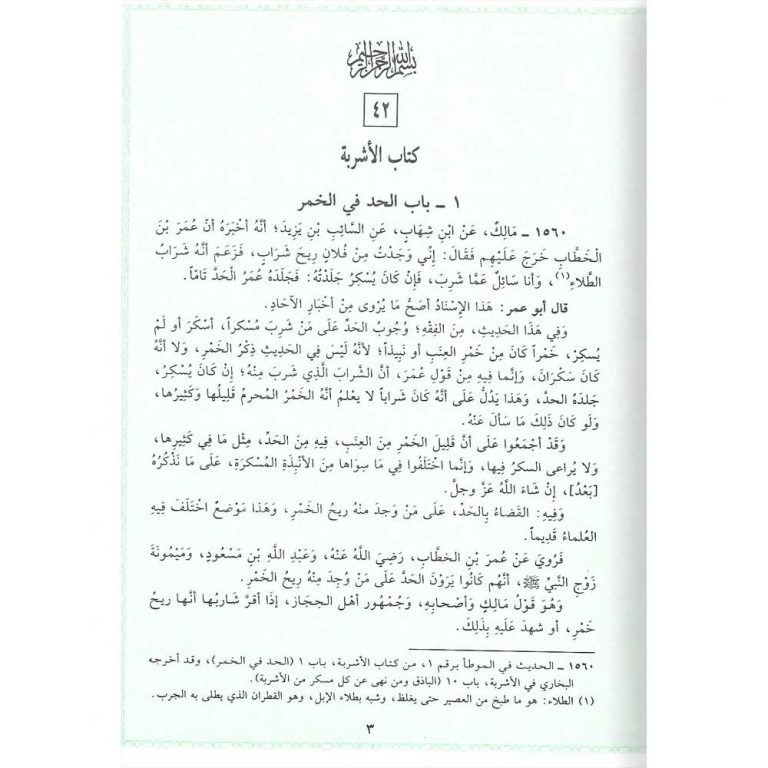 بسم الله الرحمن الرحيم
٤٢
كتاب الأشربة
١ ـ باب الحد في الخمر
١٥٦٠ ـ مَالِكٌ، عَنْ ابْنِ شِهَابٍ، عَنِ السَّائِبِ بْنِ يَزِيدَ؛ أنَّهُ أخْبَرَهُ أنّ عُمَرَ بْنَ
الْخَطَّابِ خَرَجَ عَلَيْهِم فَقَالَ: إنِّي وَجَدْتُ مِنْ فُلانٍ رِيحَ شَرَابٍ، فَزَعَمَ أنَّهُ شَرَابُ
الطِّلاءِ(١)، وَأنا سَائِلٌ عَمَّا شَرِبَ، فَإنْ كَانَ يُسْكِرُ جَلَدْتُهُ: فَجَلَدَهُ عُمَرُ الْحَدَّ تَامّاً.
قال أبو عمر: هَذَا الإسْنَادُ أصَحُّ مَا يُرْوى مِنْ أخْبَارِ الآحَادِ.
وَفِي هَذَا الحَدِيثِ، مِنَ الفِقْهِ؛ وُجُوبُ الحَدِّ عَلَى مَنْ شَرِبَ مُسْكراً، أسْكَرَ أو لَمْ
يُسكِرْ، خَمْراً كَانَ مِنْ خَمْرِ العِنَبِ أو نَبِيذاً؛ لأنَّهُ لَيْسَ فِي الحَدِيثِ ذِكْرُ الخَمْرِ، وَلا أنَّهُ
كَانَ سَكْرَانَ، وَإنَّما فِيهِ مِنْ قَوْلِ عُمَرَ، أنَّ الشَّرابَ الَّذِي شَرِبَ مِنْهُ؛ إنْ كَانَ يُسْكِرُ،
جَلدَهُ الحدَّ، وَهَذا يَدُلُّ عَلَى أنَّهُ كَانَ شَراباً لا يعْلمُ أنَّهُ الخَمْرُ المُحرمُ قَلِيلُها وَكَثِيرُها،
وَلَو كَانَ ذَلِكَ مَا سَألَ عَنْهُ.
وَقَدْ أجْمَعُوا عَلَى أنَّ قَلِيلَ الخَمْرِ مِنَ العِنَبِ، فِيهِ مِنَ الحَدِّ، مِثْل مَا فِي كَثِيرِها،
وَلا يُراعى السكرُ فِيها، وَإنَّما اخْتَلَفُوا فِي مَا سِوَاها مِنَ الأنْبِذَةِ المُسْكرَةِ، عَلَى مَا نَذْكُرُهُ
[بَعْدُ]، إنْ شَاءَ اللَّهُ عَزَّ وجلَّ.
وَفِيهِ: القَضَاءُ بِالحَدِّ، عَلَى مَنْ وَجدَ منهُ ريحُ الخَمْرِ، وَهَذا مَوْضعٌ اخْتَلَفَ فِيهِ
العُلماءُ قَدِيماً.
فَرُويَ عَنْ عُمرَ بنِ الخطَّابِ، رَضِيَ اللَّهُ عَنْهُ، وَعَبْدِ اللَّهِ بْنِ مَسْعُودٍ، وَمَيْمُونَةَ
زَوْجِ النَّبيِّ ﷺ، أنَّهُم كَانُوا يَرَوْنَ الحَدَّ عَلَى مَنْ وُجِدَ مِنْهُ رِيحُ الخَمْرِ.
وَهُوَ قَوْلُ مَالِكٍ وَأصْحَابِهِ، وَجُمْهُورِ أهْلِ الحِجَازِ، إذَا أقرَّ شَارِبُها أنَّها ريحُ
خَمْرٍ، أو شهدَ عَلَيهِ بِذَلِكَ.
١٥٦٠ ـ الحديث في الموطأ برقم ١، من كتاب الأشربة، باب ١ (الحد في الخمر)، وقد أخرجه
البخاري في الأشربة، باب ١٠ (الباذق ومن نهى عن كل مسكر من الأشربة).
(١) الطلاء: هو ما طبخ من العصير حتى يغلظ، وشبه بطلاء الإبل، وهو القطران الذي يطلى به الجرب.
٣